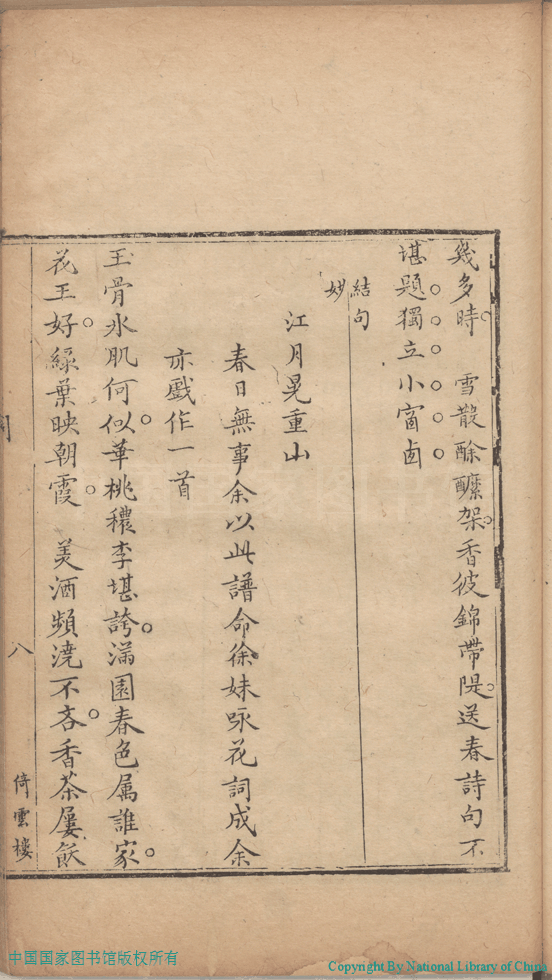 幾多時　雪散酴醿架香彼錦帶隄送春詩句不
堪題獨立小窗鹵
結句
妙
江月晃重山
春日無事余以此譜命徐妹咏花詞成余
亦戲作一首
玉骨氷肌何似華桃穠李堪誇滿園春色属誰家
花王好緑葉映朝霞　美酒頻澆不吝香茶屢飲
八
倚雲樓
中国国家图书馆版权所有
Copyright By National Library of China